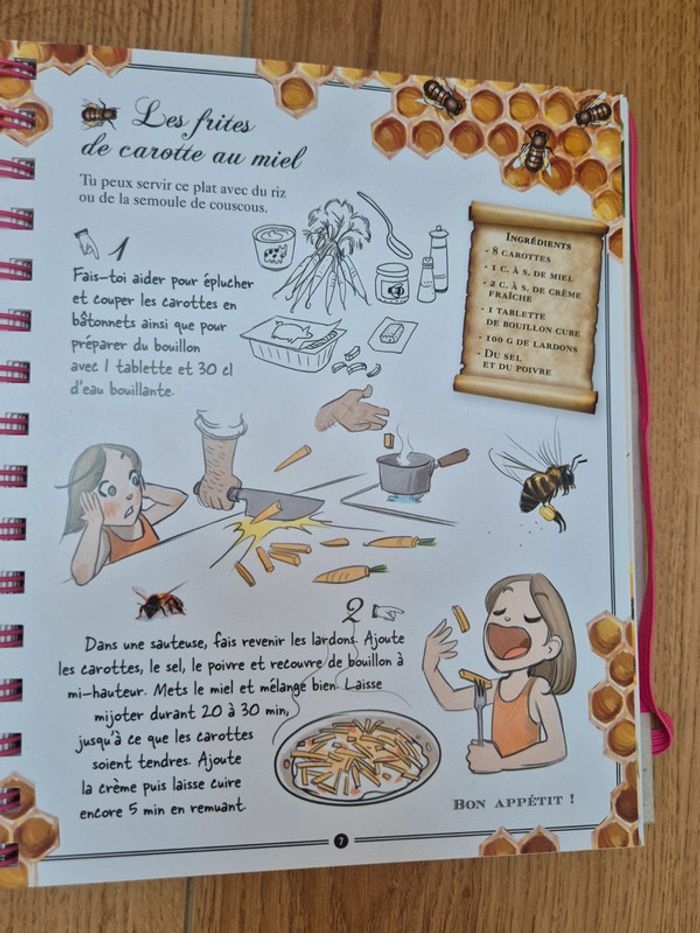 Les frites
de carotte au miel
Tu peux servir ce plat avec du riz
ou de la semoule de couscous.
INGRÉDIENTS
- 8 CAROTTES
- 1 C. À S. DE MIEL
- 2 C. À S. DE CRÈME
FRAÎCHE
- 1 TABLETTE
DE BOUILLON CUBE
- 100 G DE LARDONS
- DU SEL
ET DU POIVRE
1
Fais-toi aider pour éplucher
et couper les carottes en
bâtonnets ainsi que pour
préparer du bouillon
avec 1 tablette et 30 cl
d'eau bouillante.
2
Dans une sauteuse, fais revenir les lardons. Ajoute
les carottes, le sel, le poivre et recouvre de bouillon à
mi-hauteur. Mets le miel et mélange bien. Laisse
mijoter durant 20 à 30 min,
jusqu'à ce que les carottes
soient tendres. Ajoute
la crème puis laisse cuire
encore 5 min en remuant.
BON APPÉTIT !
7